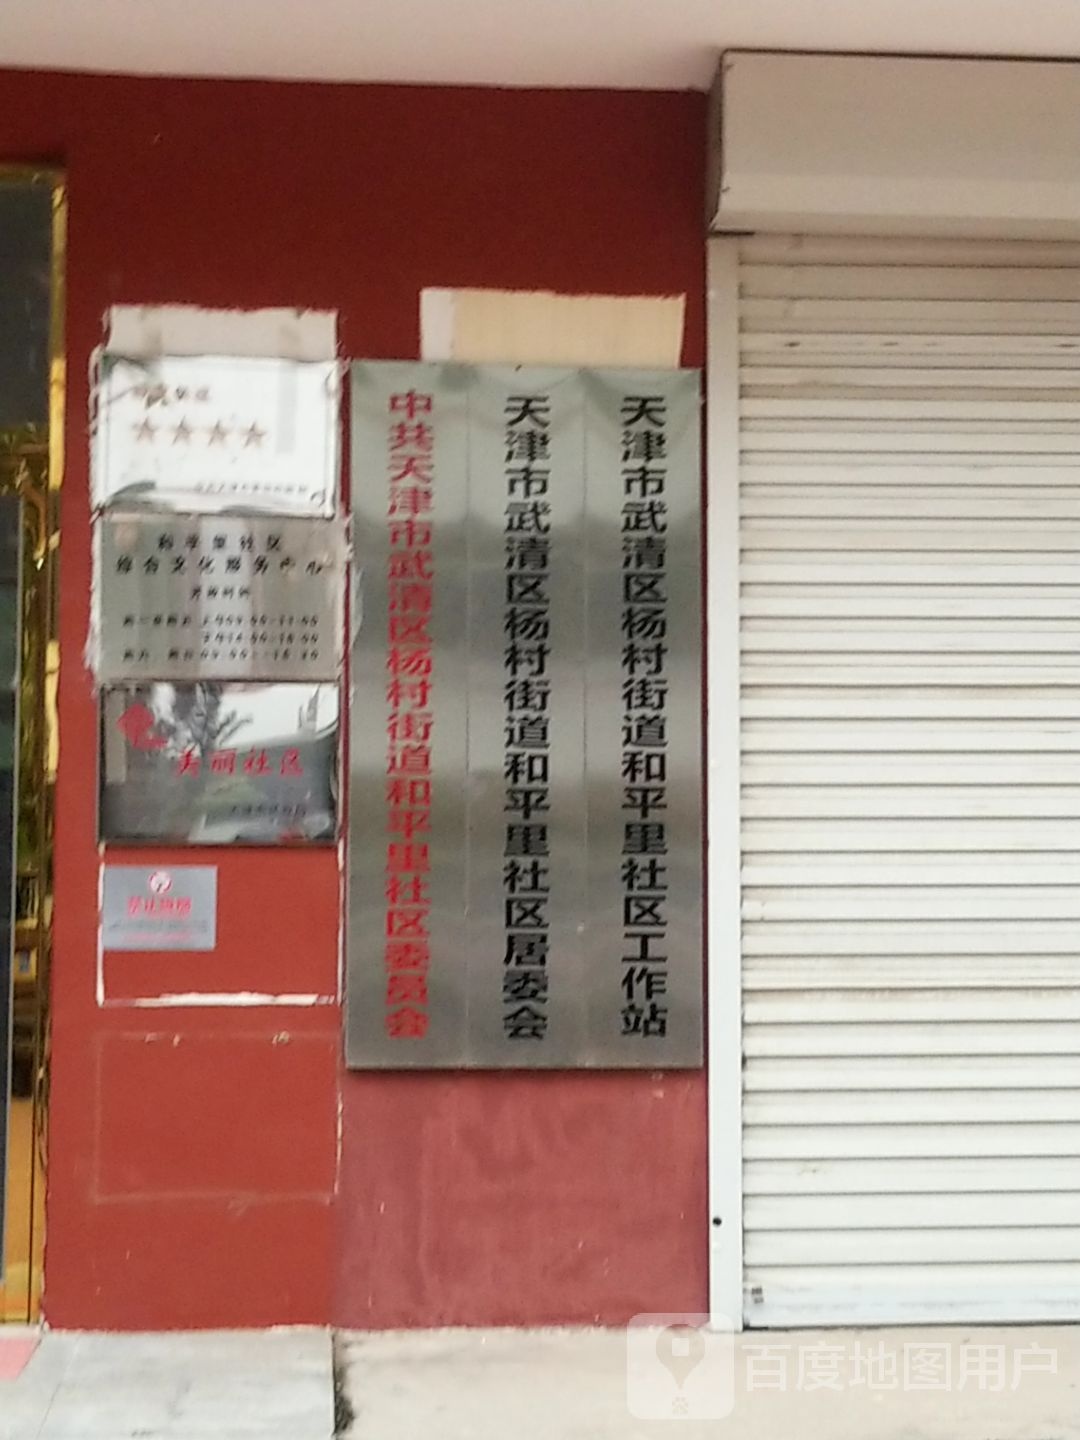 中共天津市武清区杨村街道和平里社区委员会
天津市武清区杨村街道和平里社区居委会
天津市武清区杨村街道和平里社区工作站
和平里社区
综合文化服务中心
开放时间
美丽社区
百度地图用户